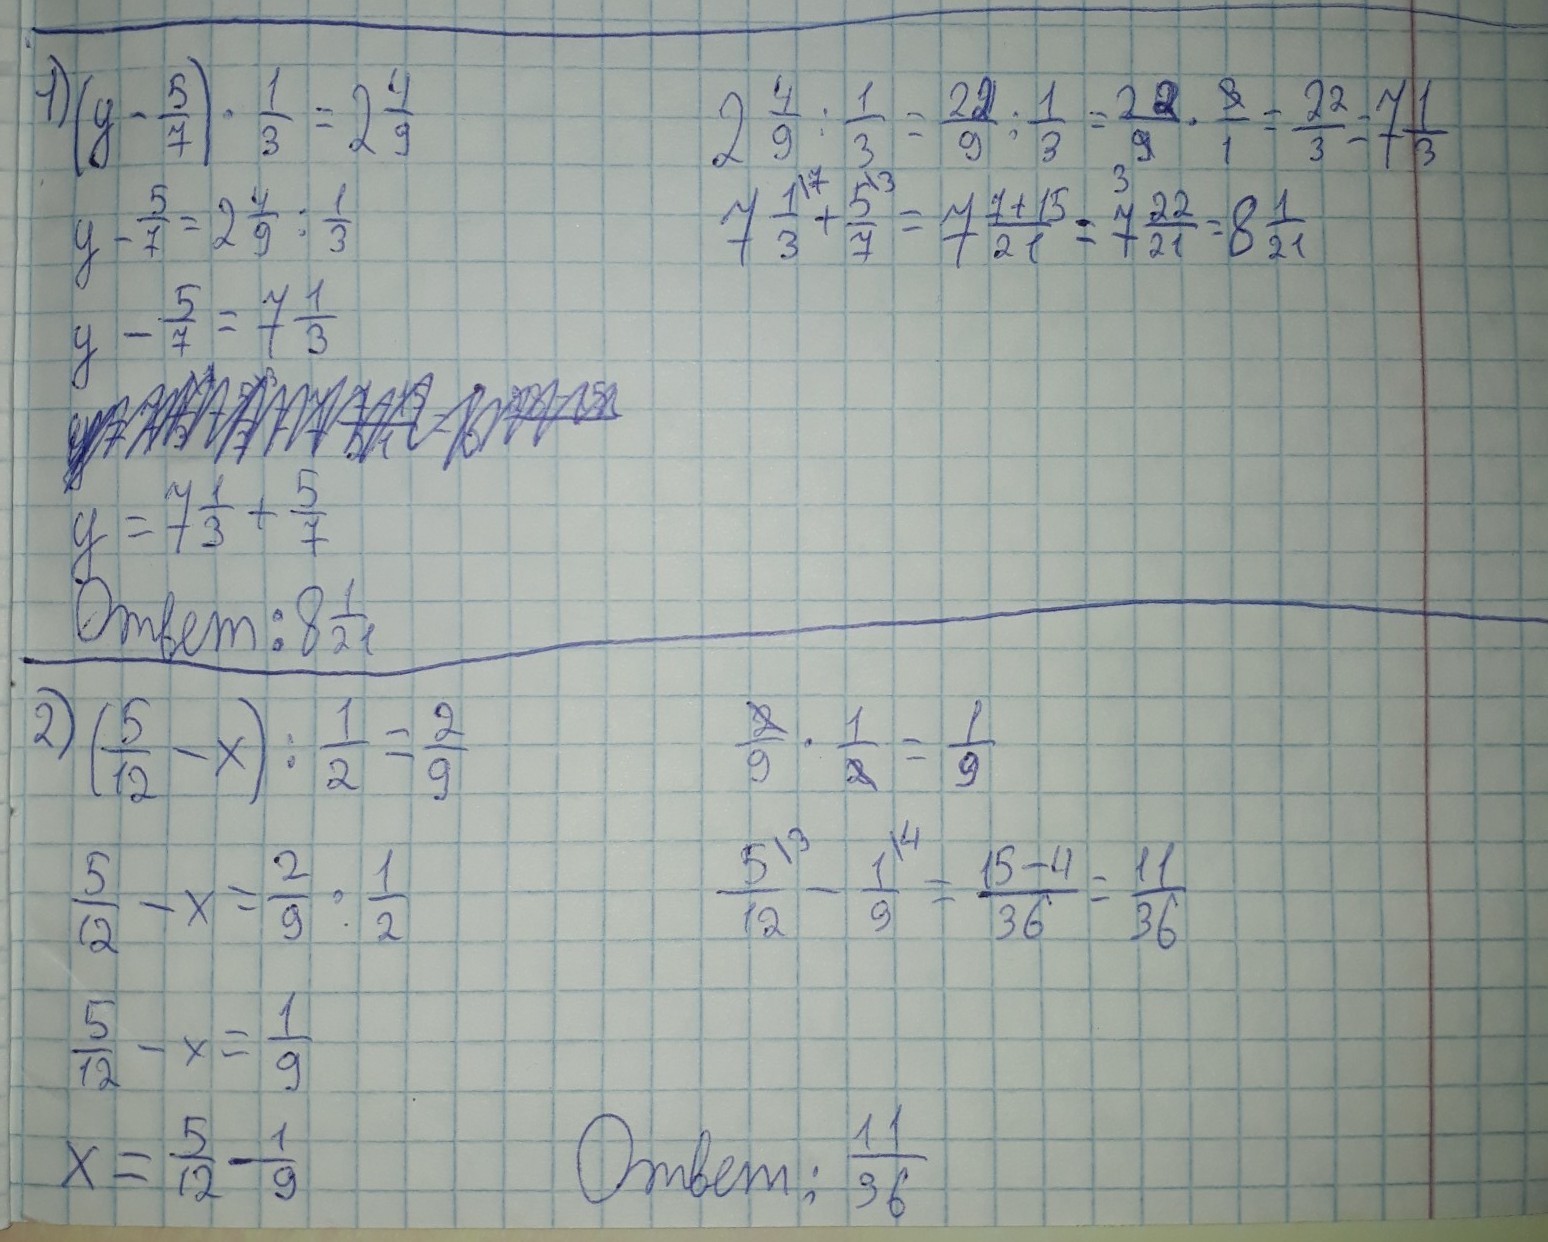 1) (y - 5/7) · 1/3 = 2 4/9
y - 5/7 = 2 4/9 : 1/3
y - 5/7 = 7 1/3
y = 7 1/3 + 5/7
Ответ: 8 1/21
2 4/9 : 1/3 = 22/9 : 1/3 = 22/9 · 3/1 = 22/3 = 7 1/3
3
7 1\7/3 + 5\3/7 = 7 7+15/21 = 7 22/21 = 8 1/21
2) (5/12 - x) : 1/2 = 2/9
5/12 - x = 2/9 : 1/2
5/12 - x = 1/9
x = 5/12 - 1/9
2/9 · 1/2 = 1/9
5\3/12 - 1\4/9 = 15-4/36 = 11/36
Ответ: 11/36